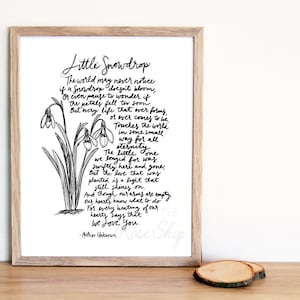 Little Snowdrop
The world may never notice
if a Snowdrop doesn't bloom,
Or even pause to wonder if
the petals fell too soon
But every life that ever forms
or ever comes to be
Touches the world
in some small
way for all
eternity
The little one
we longed for was
swiftly here and gone
But the love that was
planted is a light that
still shines on
And though our arms are empty
our hearts know what to do
For every beating of our
hearts says that
we love you
-Author Unknown
Rose Shop